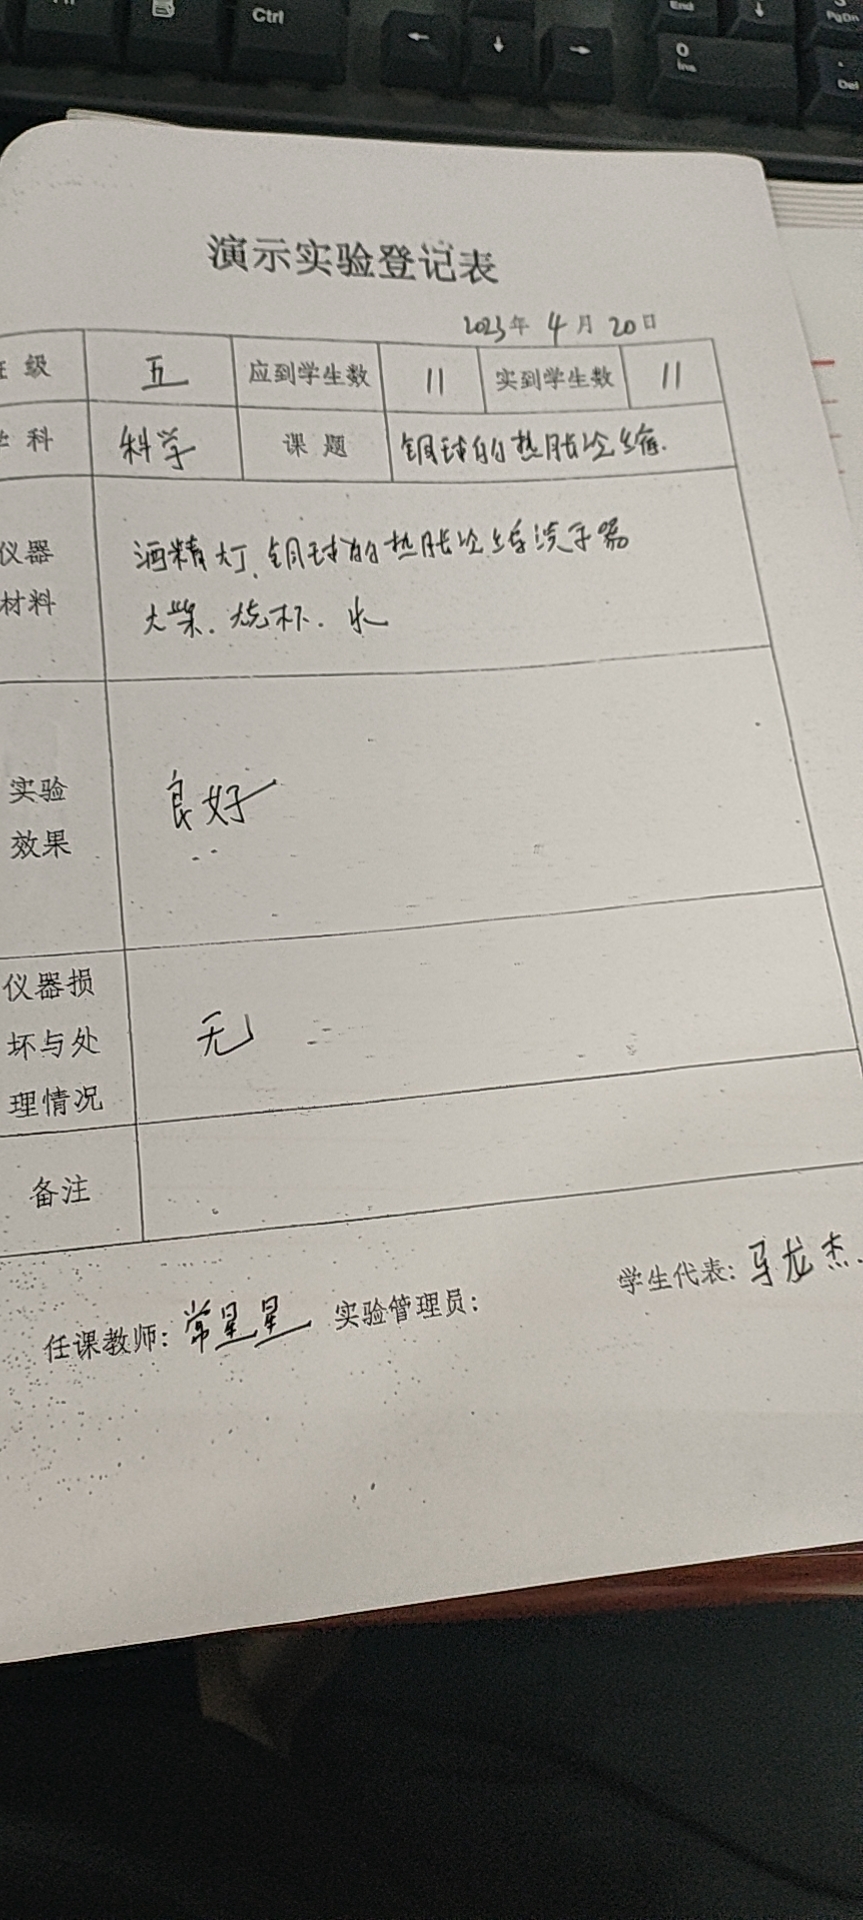 Ctrl
End
PgDn
0
Ins
.
Del
演示实验登记表
2023年 4月 20日
级 五 应到学生数 11 实到学生数 11
科 科学 课题 铜球的热胀冷缩.
仪器
材料
酒精灯、铜球的热胀冷缩演示器
火柴.烧杯.水
实验
效果
良好
仪器损
坏与处
理情况
无
备注
任课教师: 常星星 实验管理员: 学生代表: 马龙杰.